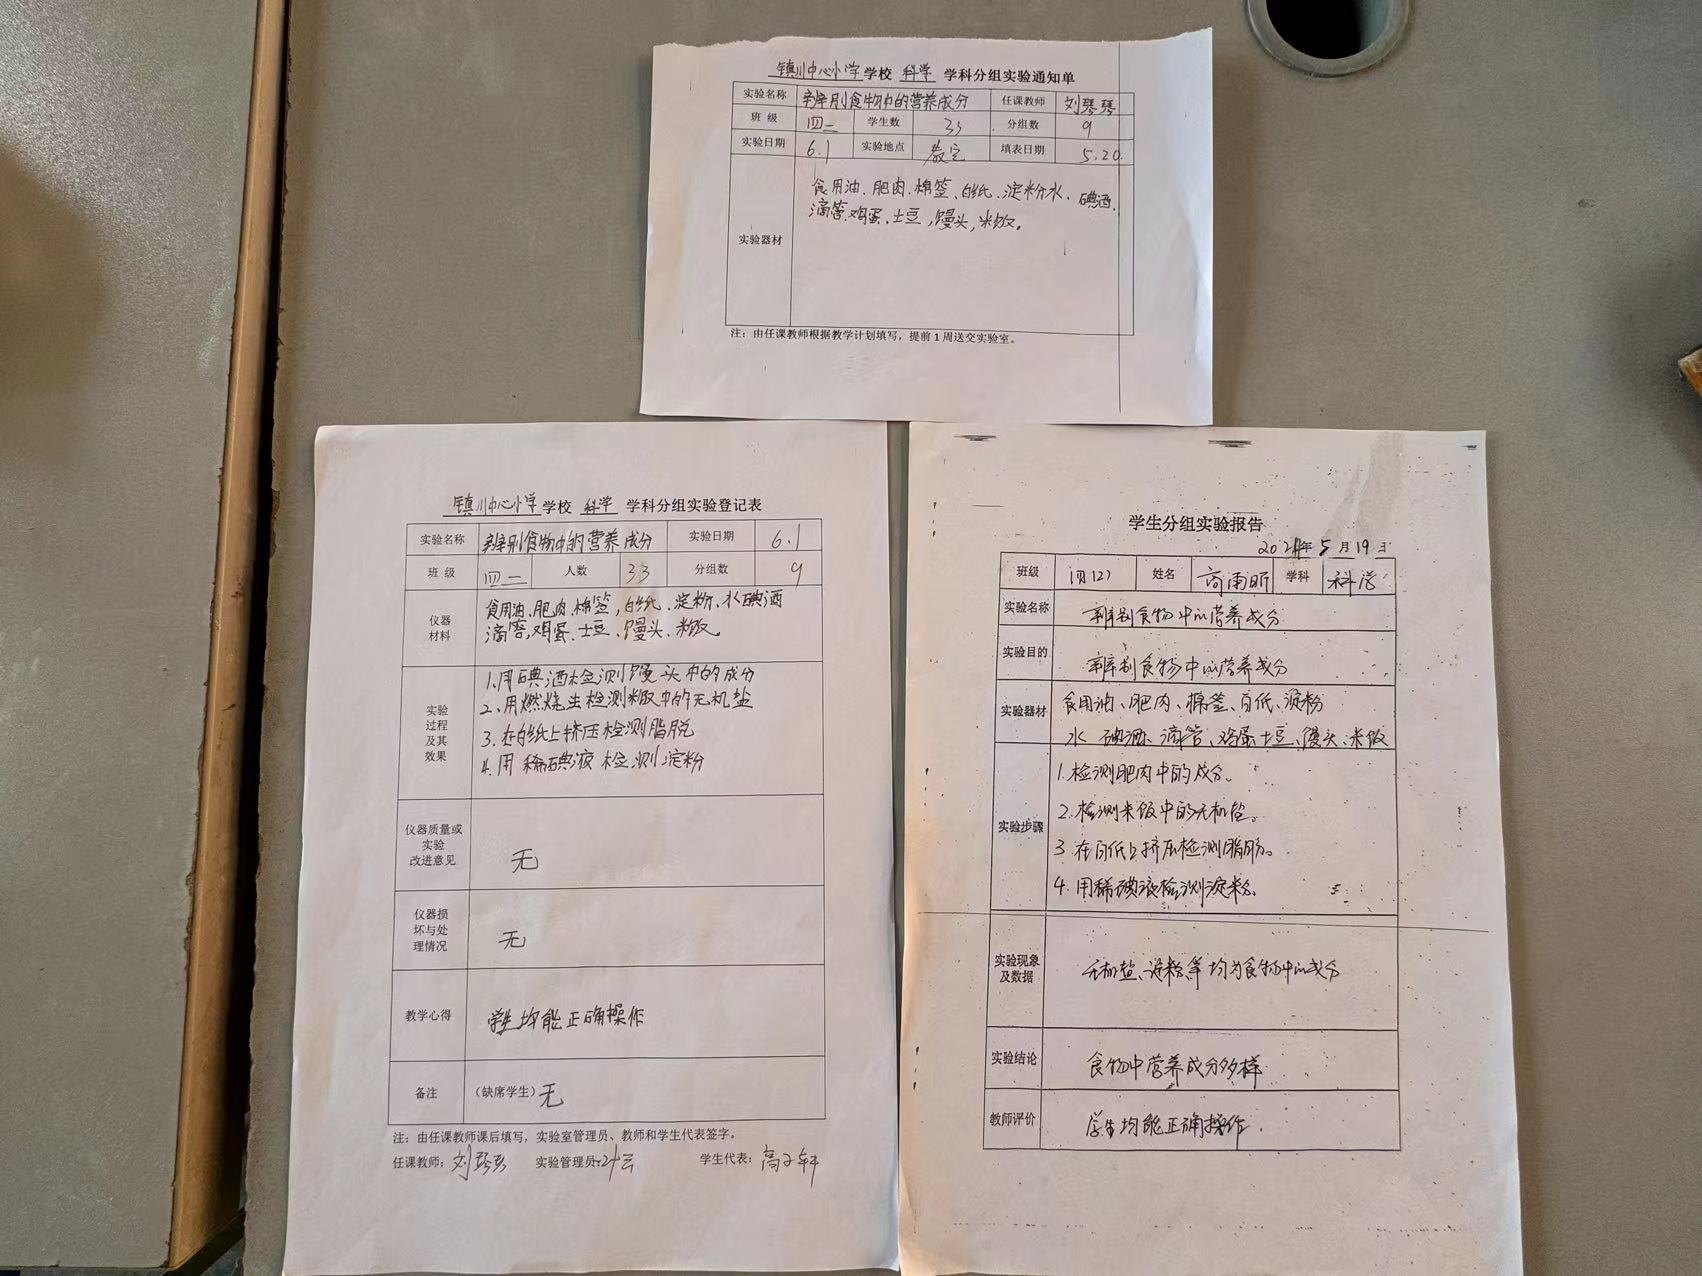 镇川中心小学学校 科学 学科分组实验通知单
实验名称 辨别食物中的营养成分 任课教师 刘琴琴
班 级 四二 学生数 33 分组数 9
实验日期 6.1 实验地点 教室 填表日期 5.20.
实验器材
食用油、肥肉、棉签、白纸、淀粉水、碘酒、
滴管、鸡蛋、土豆,馒头,米饭。
注:由任课教师根据教学计划填写,提前1周送交实验室。
镇川中心小学学校 科学 学科分组实验登记表
实验名称 辨别食物中的营养成分 实验日期 6.1
班 级 四二 人数 33 分组数 9
仪器
材料
食用油、肥肉、棉签,白纸、淀粉、水碘酒
滴管,鸡蛋、土豆、馒头、米饭。
实验
过程
及其
效果
1.用碘酒检测馒头中的成分
2、用燃烧法检测米饭中的无机盐
3.在白纸上挤压检测脂肪
4.用稀碘液检测淀粉
仪器质量或
实验
改进意见
无
仪器损
坏与处
理情况
无
教学心得 学生均能正确操作
备注 (缺席学生)无
注:由任课教师课后填写,实验室管理员、教师和学生代表签字。
任课教师:刘琴琴 实验管理员: 学生代表:高子轩
学生分组实验报告
2021年5月19日
班级 四(2) 姓名 雨昕 学科 科学
实验名称 辨别食物中的营养成分
实验目的 辨别食物中的营养成分
实验器材
食用油、肥肉、棉签、白纸、淀粉
水 碘酒、滴管、鸡蛋土豆、馒头、米饭
实验步骤
1.检测肥肉中的成分。
2.检测米饭中的无机盐。
3.在白纸上挤压检测脂肪。
4.用稀碘液检测淀粉。
实验现象
及数据
无机盐、淀粉等均为食物中的成分
实验结论 食物中营养成分多样
教师评价 学生均能正确操作.